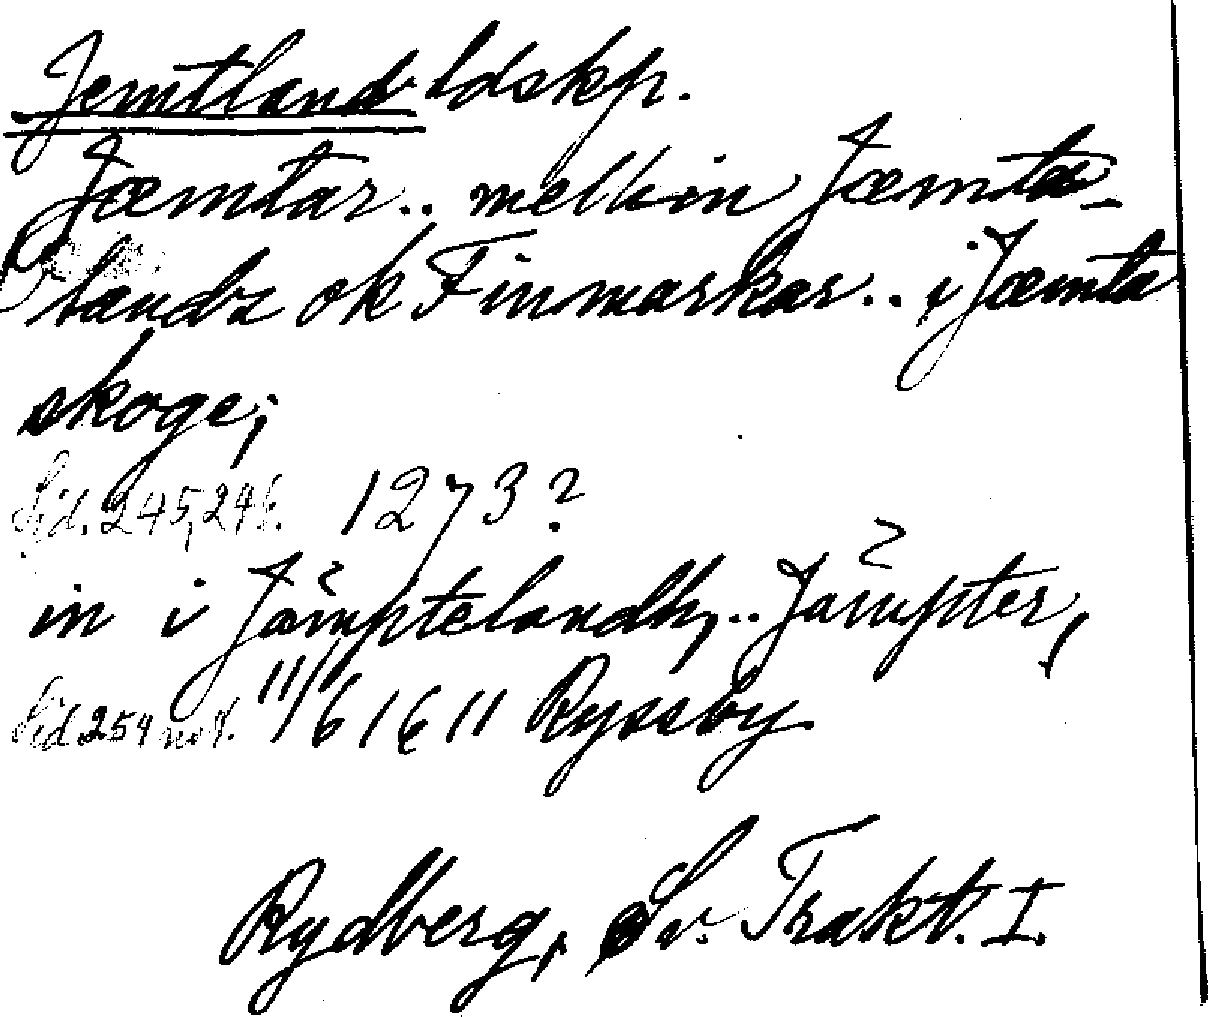 Jemtland ldskp.
Jæmtar.. mellin Jæmta-
lands ok Finmarkar.. i Jæmta
skoge;
Sid. 245, 246. 1273?
in i Jämptelandh,.. Jämpter,
Sid 254 not. 11/6 1611 Ryssby
Rydberg, Sv. Trakt. I.